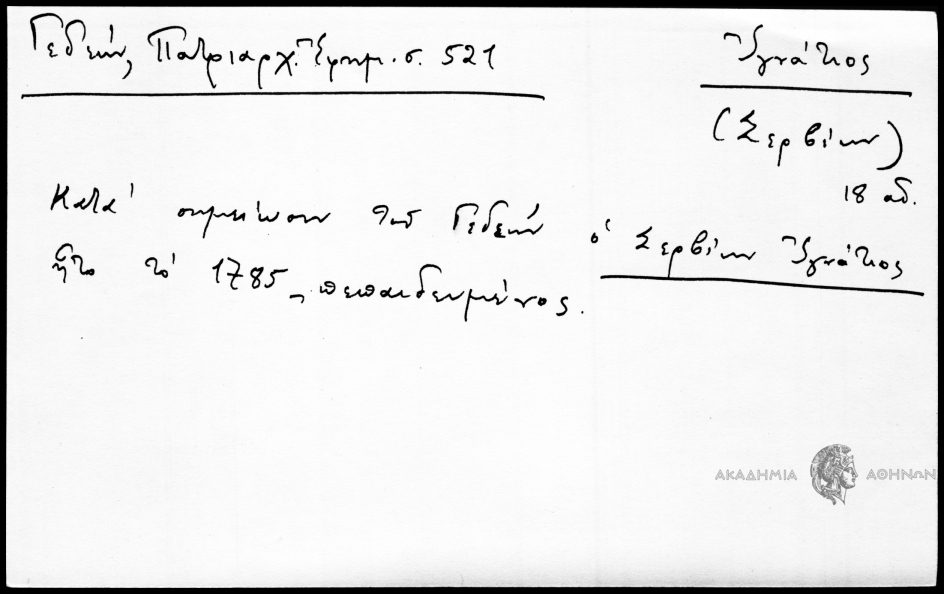 Γεδεών, Πατριαρχ. Ἐφημ. σ. 521
Ἰγνάτιος
(Σερβίων)
18 αἰ.
Κατά σημείωσιν τοῦ Γεδεών ὁ Σερβίων Ἰγνάτιος
ἦτο τό 1785 πεπαιδευμένος.
ΑΚΑΔΗΜΙΑ ΑΘΗΝΩΝ